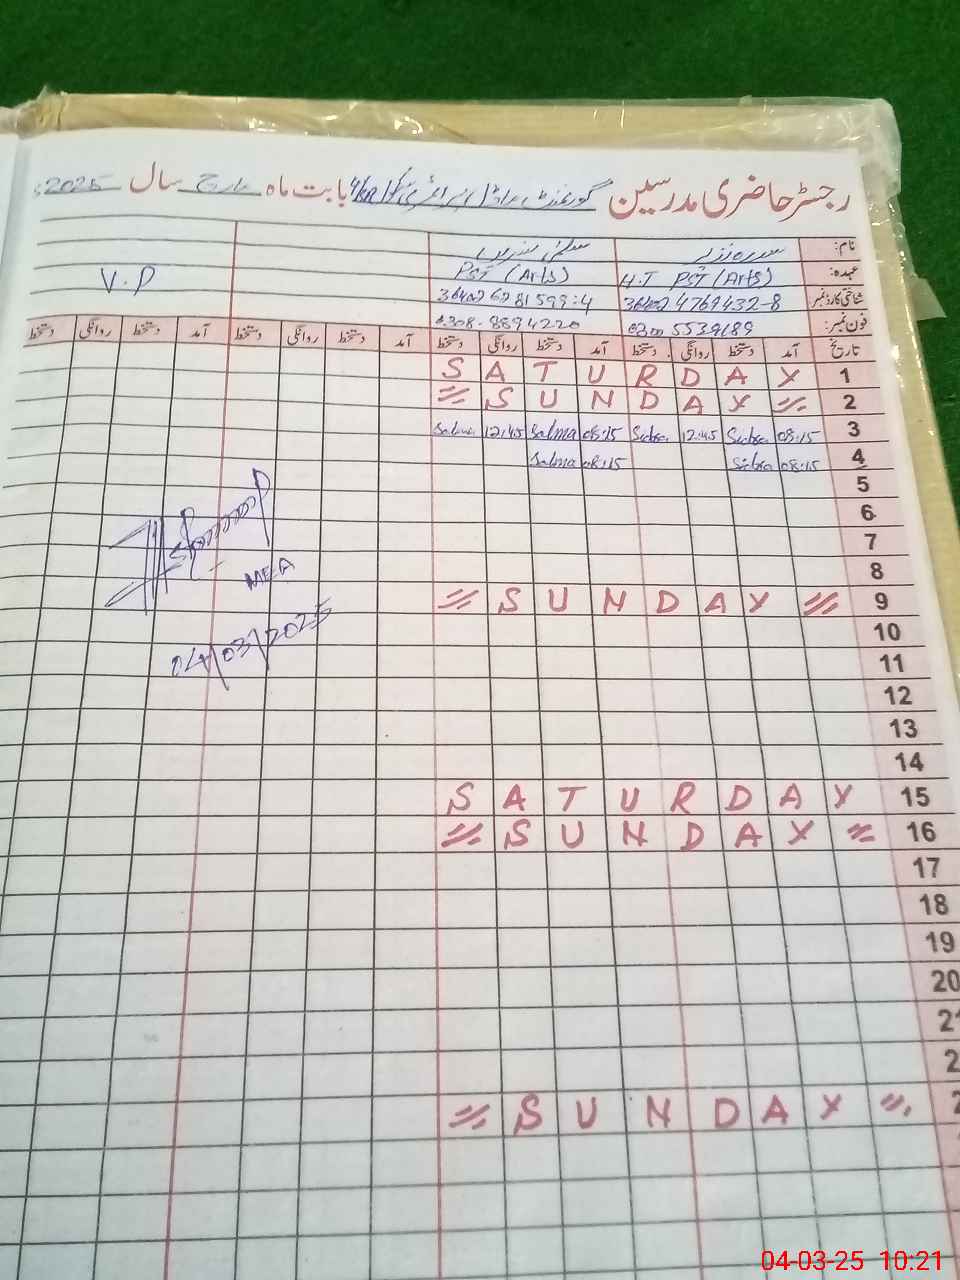 رجسٹر حاضری مدرسین گورنمنٹ ماڈل پرائمری بابت ماہ مارچ سال 2025
نام: سدرہ نذیر سلمیٰ نسرین
عہدہ: H.T PST (Arts) PST (Arts) V.P
شناختی کارڈ نمبر: 4769432-8 36402 6281599-4
فون نمبر: 0300 5539189 0308-8894220
تاریخ آمد دستخط روانگی دستخط آمد دستخط روانگی دستخط آمد دستخط روانگی دستخط آمد دستخط روانگی دستخط
S A T U R D A Y 1
= S U N D A Y = 2
Salma 12:45 Salma 08:15 Sidra 12:45 Sidra 08:15 3
Salma 08:15 Sidra 08:15 4
5
6
7
8
= S U N D A Y = 9
MEA
04/03/2025
10
11
12
13
14
S A T U R D A Y 15
= S U N D A Y = 16
17
18
19
20
= S U N D A Y =
04-03-25 10:21